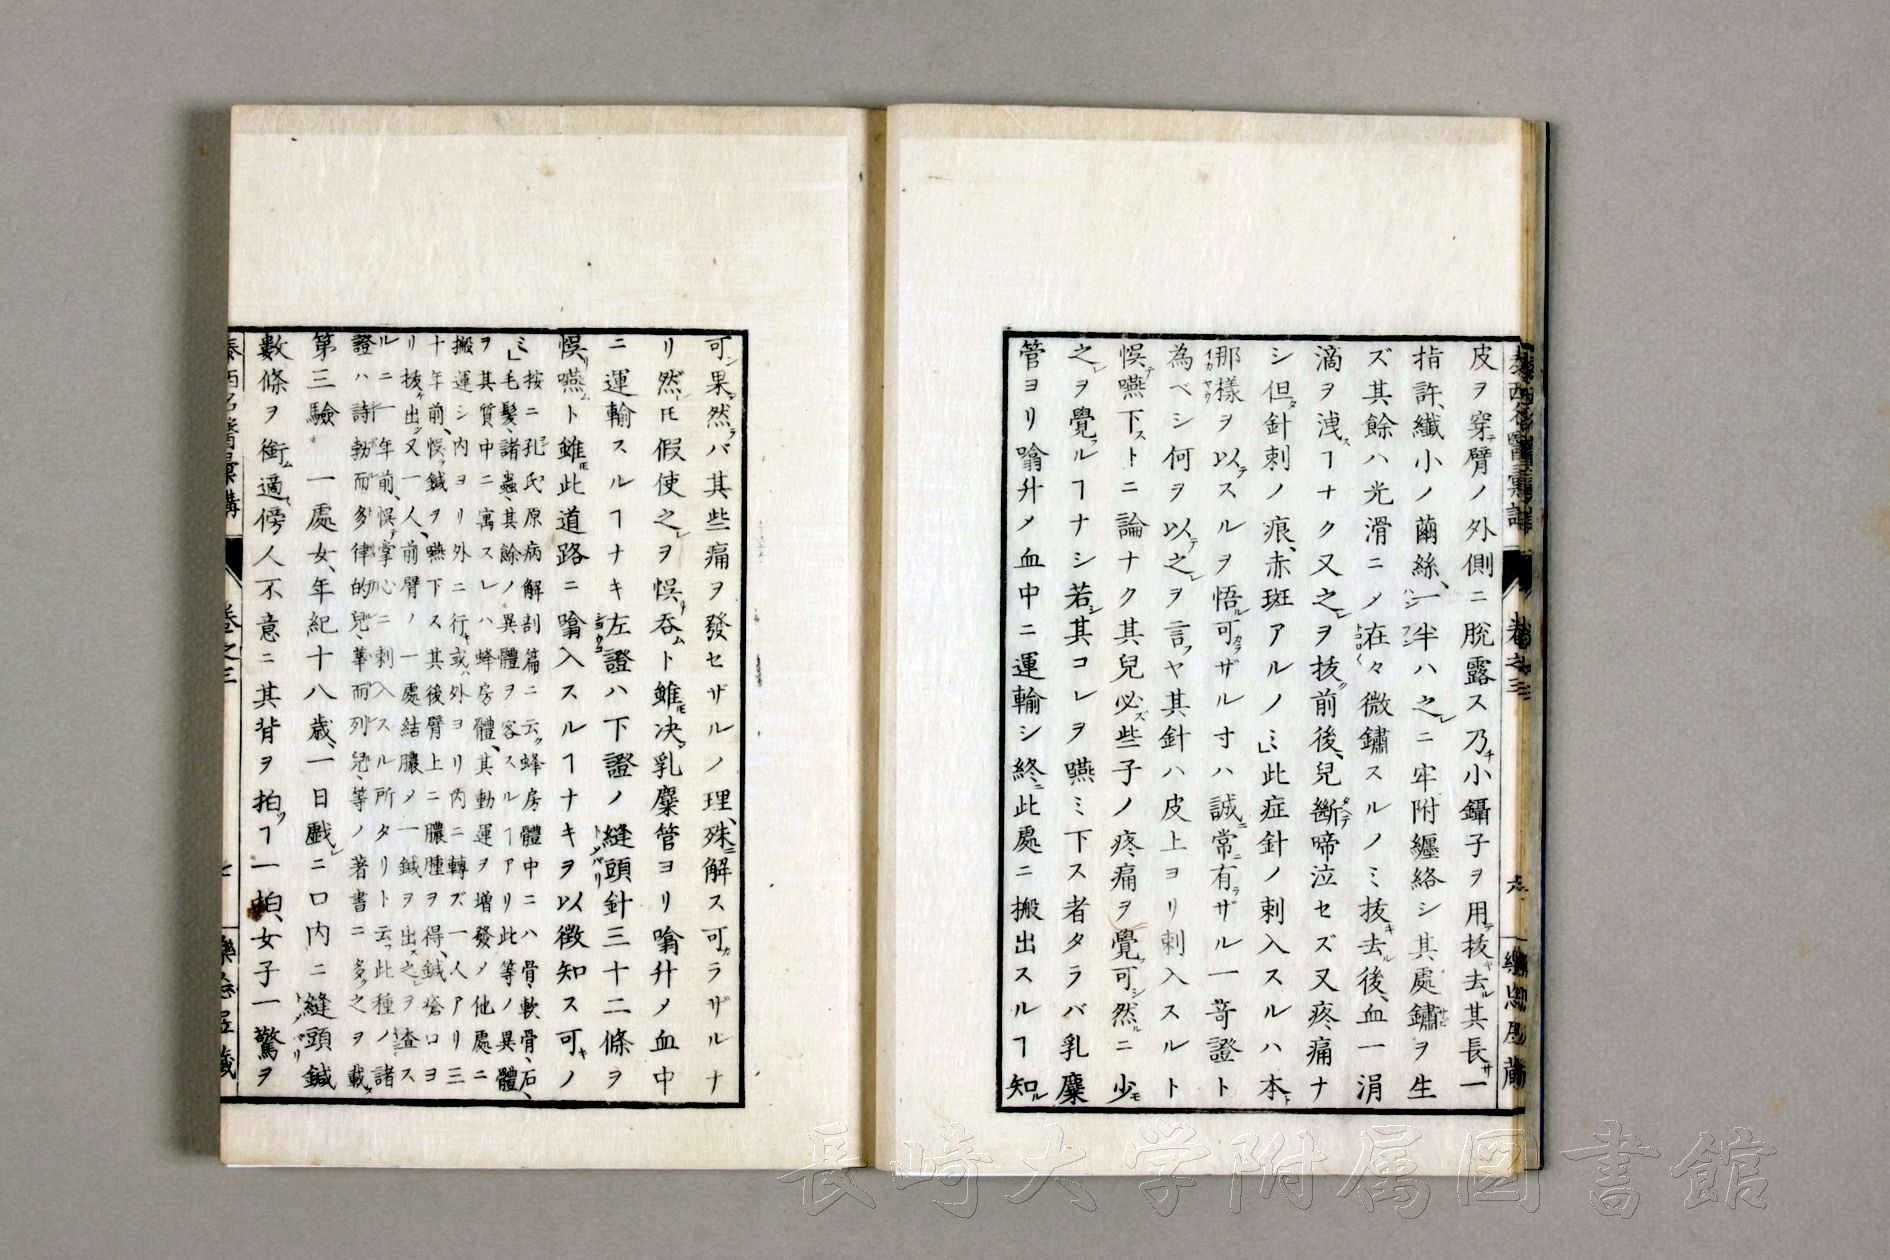 皮ヲ穿テ臂ノ外側ニ脫露ス乃チ小鑷子ヲ用テ拔キ去ル其長サ一
指許、纖小ノ繭絲、一半ハ之レニ牢附纒絡シ其處鏽ヲ生
ズ其餘ハ光滑ニメ在々微鏽スルノミ拔キ去ル後、血一涓
滴ヲ洩スヿナク又之レヲ拔ク前後、兒斷テ啼泣セズ又疼痛ナ
シ但タ針刺ノ痕、赤斑アルノミ」此症針ノ刺入スルハ本ト
那樣ヲ以テスルヲ悟ル可カラザル寸ハ誠ニ常ニ有ラザル一奇證ト
為ベシ何ヲ以テ之レヲ言フヤ其針ハ皮上ヨリ刺入スルト
悞テ嚥下ストニ論ナク其兒必ズ些子ノ疼痛ヲ覺フ可シ然ルニ少モ
之レヲ覺フルヿナシ若シ其コレヲ嚥ミ下ス者タラバ乳糜
管ヨリ噏升メ血中ニ運輸シ終ニ此處ニ搬出スルヿ知ル
可シ果シ然ラバ其些痛ヲ發セザルノ理、殊ニ解ス可カラザルナ
リ然レ𪜈假使之レヲ悞リ吞ムト雖𪜈决シ乳糜管ヨリ噏升メ血中
ニ運輸スルヿナキ左證ハ下證ノ縫頭針三十二條ヲ
悞リ嚥ムト雖𪜈此道路ニ噏入スルヿナキヲ以徵知ス可キノ
ミ」按ニ孔氏原病解剖篇ニ云フ蜂房體中ニハ骨、軟骨、石、
毛髮、諸蟲、其餘ノ異體ヲ容スルヿアリ此等ノ異體、
ヲ其質中ニ寓スレハ蜂房體、其動運ヲ增發メ他處ニ
搬運シ內ヨリ外ニ行キ或ハ外ヨリ內ニ轉ズ一人アリ三
十年前、悞テ鍼ヲ嚥下ス其後臂上ニ膿腫ヲ得、鍼瘡口ヨ
リ拔ケ出ツ又一人、前臂ノ一處結膿メ一鍼ヲ出ス之レヲ查ス
ルニ一年前、悞テ掌心ニ刺入スル所タリト云フ此種ノ諸
證ハ詩勃而多、律的兒、華而列兒、等ノ著書ニ多ク之ヲ載ス
第三驗　一處女、年紀十八歲、一日戲レニ口內ニ縫頭鍼
數條ヲ銜ム適傍人不意ニ其背ヲ拍ツヿ一拍、女子一驚ヲ
泰西名醫彙講　卷之三　七　樂志居藏